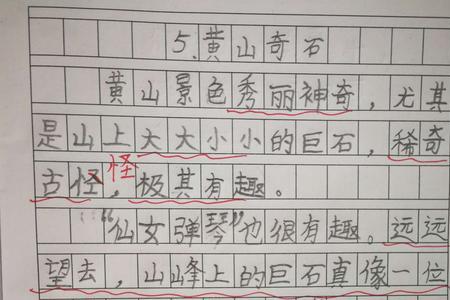 5.黄山奇石
黄山景色秀丽神奇，尤其
是山上大大小小的巨石，稀奇
古怪怪，极其有趣。
“仙女弹琴”也很有趣。远远
望去，山峰上的巨石真像一位